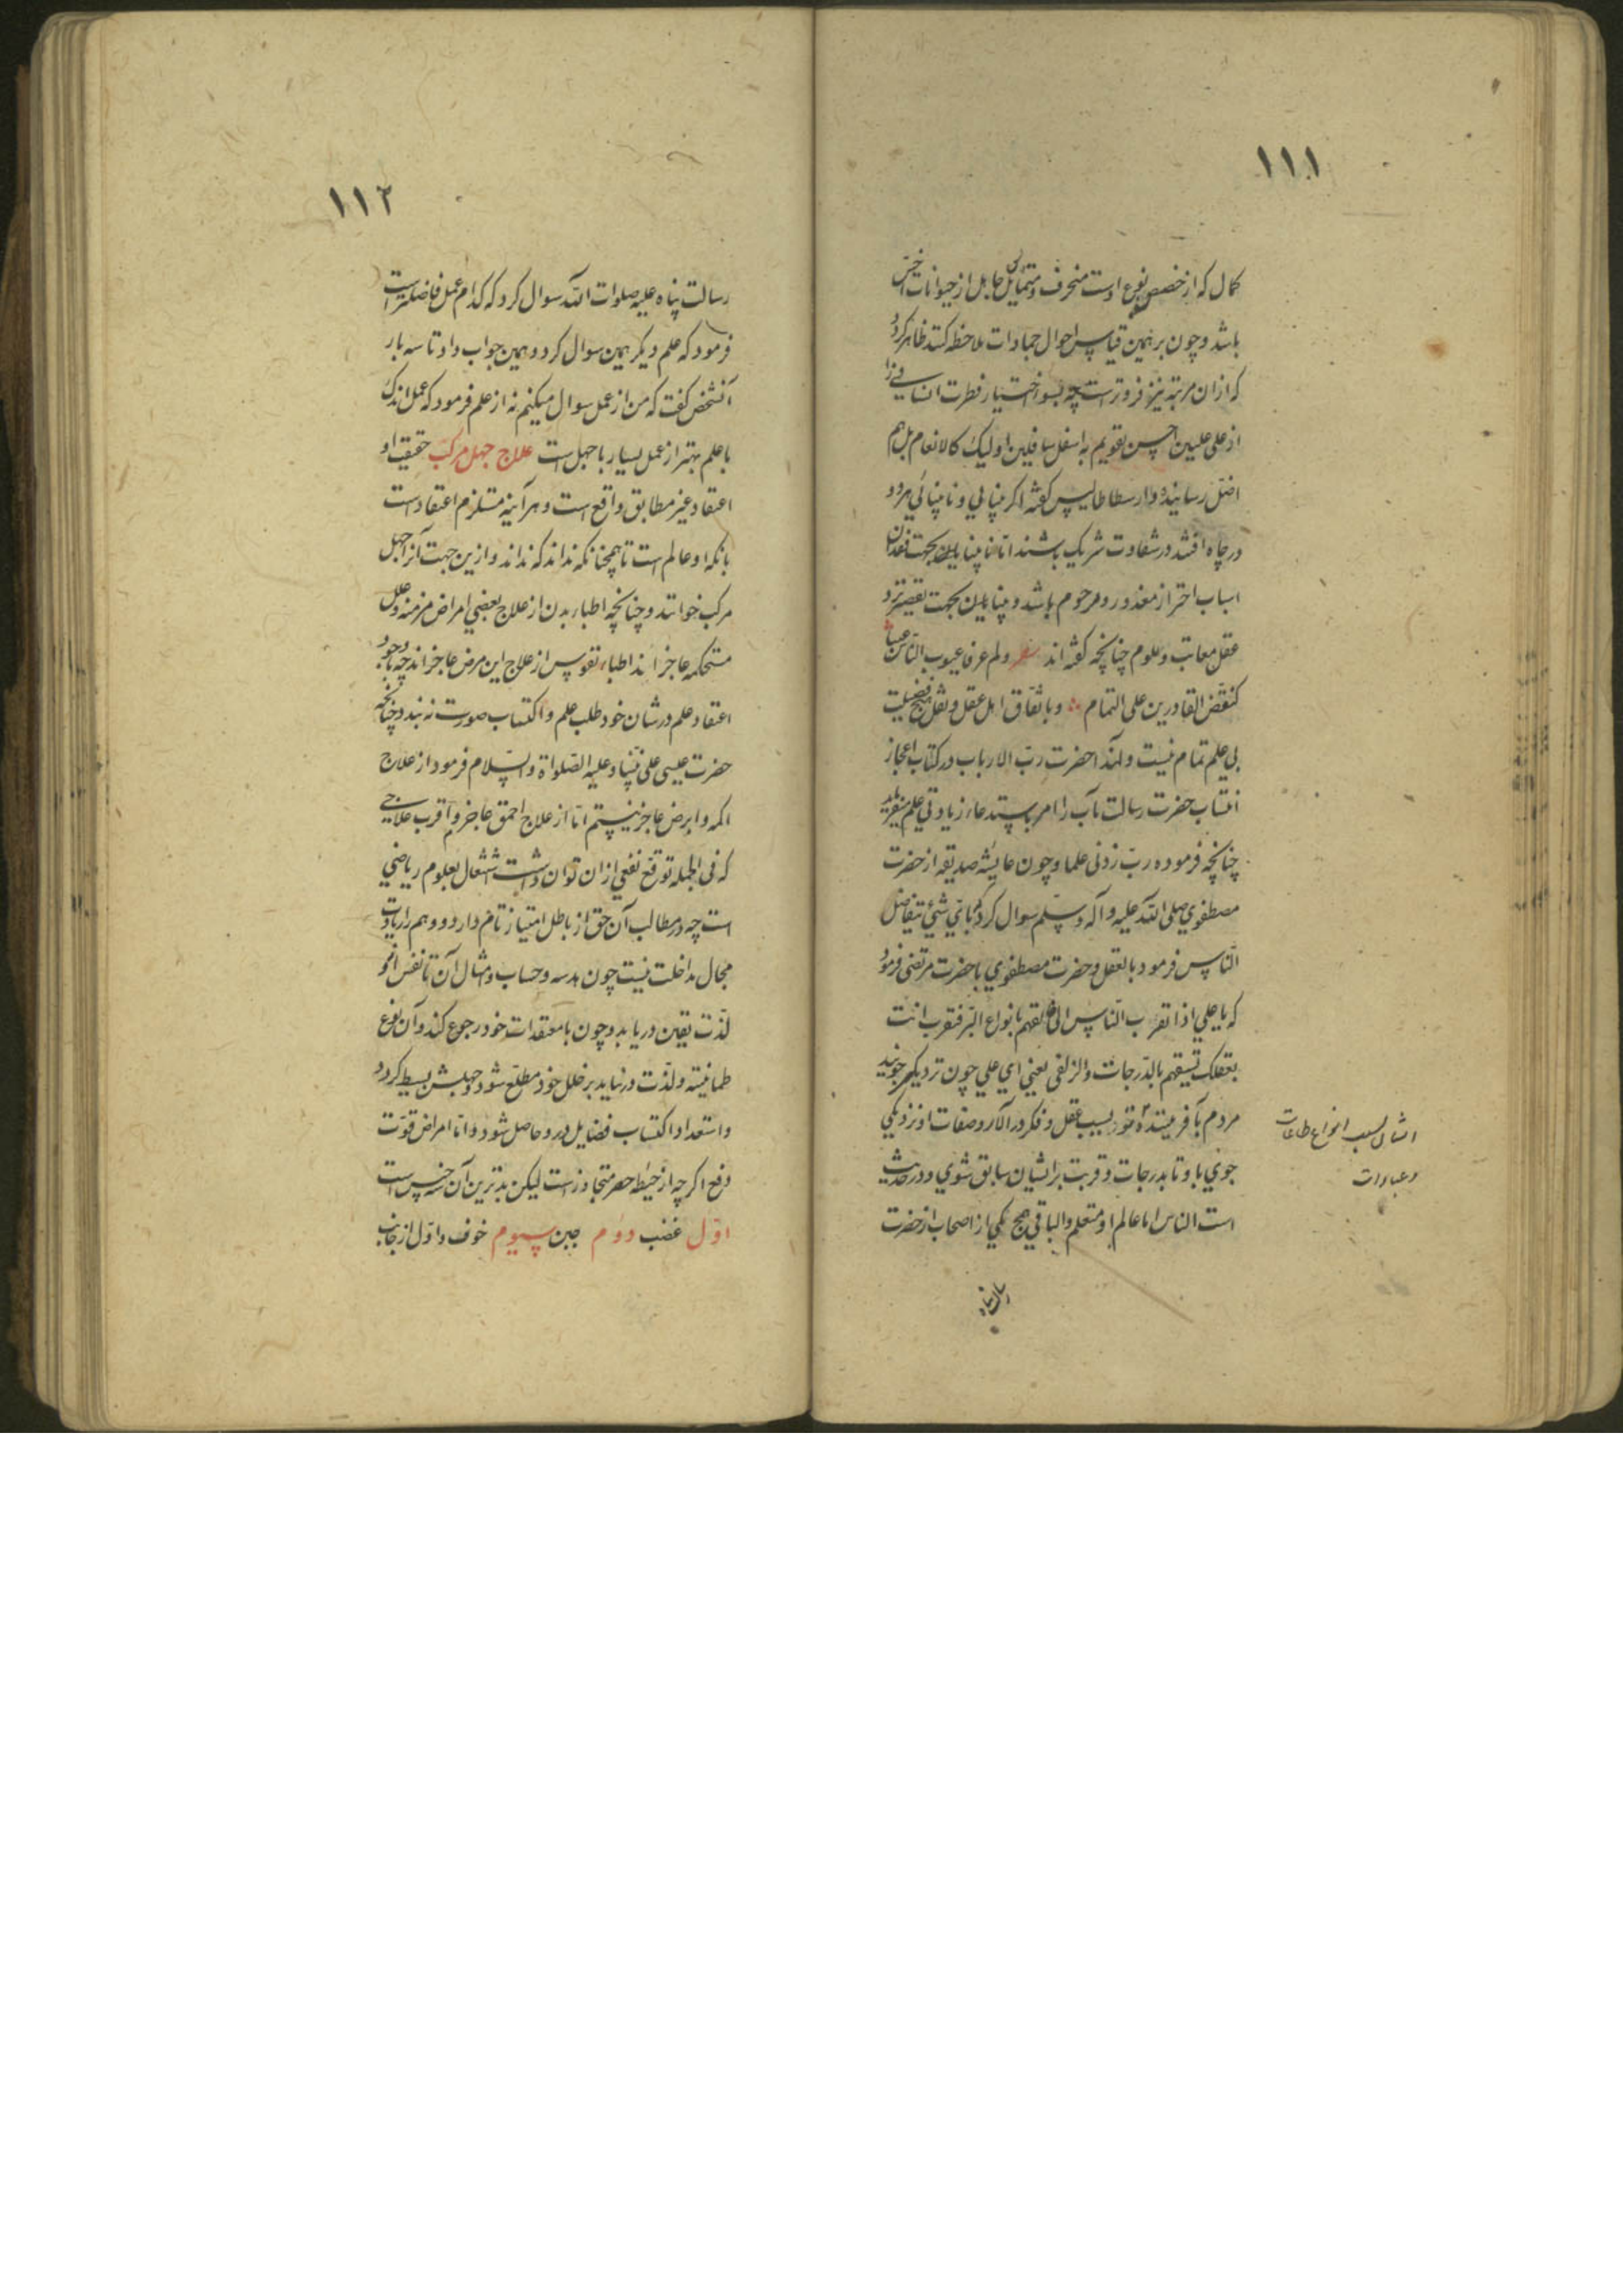 ۱۱۱
کمال که از خصص نوع اوست منحرف و متمایل جاهل از حیوانات اخسّ
باشد و چون بر همین قیاس احوال جمادات ملاحظه کند ظاهر کردد
که ازان مرتبه نیز فروتر است چه بسوء اختیار فطرت انسانی را
از علی علیین احسن تقویم به اسفل سافلین اولیک کالانعام بل هم
اضل رسانیده و ارسطاطالیس کفته اکر بینایی و نابینائی هر دو
در چاه افتند در شقاوت شریک باشند امّا نابینا بجهت فقدان
اسباب احتراز معذور و مرحوم باشد و بینا بجهت تقصیر نزد
عقل معاتب و ملوم چنانچه کفته اند شعر ولم ار فی عیوب الناس عیبا
کنقض القادرین علی التمام و باتفاق اهل عقل و نقل هیچ فضیلت
بی علم تمام نیست و لهذا حضرت ربّ الارباب در کتاب اعجاز
انتساب حضرت رسالت مآب را امر باستدعاء زیادتی علم میفرماید
چنانچه فرموده ربّ زدنی علما و چون عایشه صدیقه از حضرت
مصطفوی صلی الله علیه و آله و سلّم سوال کرد که بایّ شیٔ یتفاضل
الناس فرمود بالعقل و حضرت مصطفوی با حضرت مرتضی فرمود
که یا علی اذا تقرب الناس الی خالقهم بانواع البرّ فتقرب انت
بعقلک تسبقهم بالدّرجات والزلفی یعنی ای علی چون نزدیکی جویند
مردم بآفریننده تو بسبب عقل و فکر در آلاء و صفات او نزدیکی
جوی باو تا بدرجات و قربت بر ایشان سابق شوی و در حدیث
است الناس اما عالم او متعلم والباقی همج یکی از اصحاب از حضرت
ایشان بسبب انواع طاعات
و عبادات
رسالت پناه
۱۱۲
رسالت پناه علیه صلوات الله سوال کرد که کدام عمل فاضلتر است
فرمود که علم دیگر همین سوال کرد و همین جواب داد تا سه بار
آنشخص کفت که من از عمل سوال میکنم نه از علم فرمود که عمل اندک
با علم بهتر از عمل بسیار با جهل است علاج جهل مرکّب حقیقت او
اعتقاد غیر مطابق واقع است و هرآینه مستلزم اعتقاد است
بانکه او عالم است تا همچنانکه نداند که نداند و ازین جهت آنرا جهل
مرکب خوانند و چنانچه اطباء بدن از علاج بعضی امراض مزمنه و علل
مستحکمه عاجزاند اطباء نفوس از علاج این مرض عاجزاند چه با وجود
اعتقاد علم در شان خود طلب علم و اکتساب صورت نه بندد چنانچه
حضرت عیسی علی نبیّنا و علیه الصلواة و السّلام فرمود از علاج
اکمه و ابرص عاجز نیستم امّا از علاج احمق عاجزم و اقرب علاجی
که فی الجمله توقّع نفعی ازان توان داشت اشتغال بعلوم ریاضی
است چه در مطالب آن حق از باطل امتیاز تام دارد و وهم را زیادت
مجال مداخلت نیست چون هندسه و حساب و امثال آن تا نفس او
لذّت یقین دریابد و چون با معتقدات خود رجوع کند و آن نوع
طمانینه و لذّت در نیابد بر خلل خود مطلع شود و جهلش بسیط کردد
و استعداد اکتساب فضایل در و حاصل شود و امّا امراض قوّت
دفع اکرچه از حیطه حصر متجاوز است لیکن بدترین آن سه جنس است
اوّل غضب دوم جبن سیوم خوف و اوّل از جانب